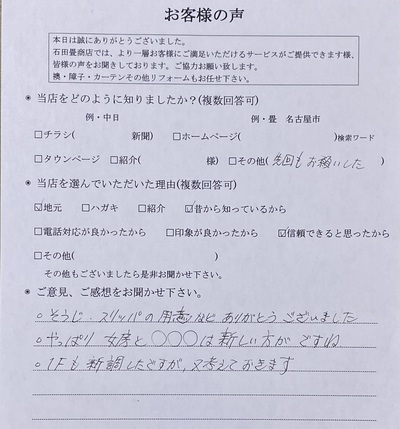 お客様の声
本日は誠にありがとうございました。
石田畳商店では、より一層お客様にご満足いただけるサービスがご提供できます様、
皆様の声をお聞きしております。ご協力お願い致します。
襖・障子・カーテンその他リフォームもお任せ下さい。
※ 当店をどのように知りましたか？(複数回答可)
例・中日 例・畳 名古屋市
□チラシ( 新聞) □ホームページ( )検索ワード
□タウンページ □紹介( 様) □その他( 先回もお願いした )
※ 当店を選んでいただいた理由(複数回答可)
☑地元 □ハガキ □紹介 ☑昔から知っているから
□電話対応が良かったから □印象が良かったから ☑信頼できると思ったから
□その他( )
その他もございましたら是非お聞かせ下さい。
※ ご意見、ご感想をお聞かせ下さい。
○そうじ、スリッパの用意などありがとうございました
○やっぱり 女房と〇〇〇は新しい方がですね
○1Fも新調したですが、又考えておきます